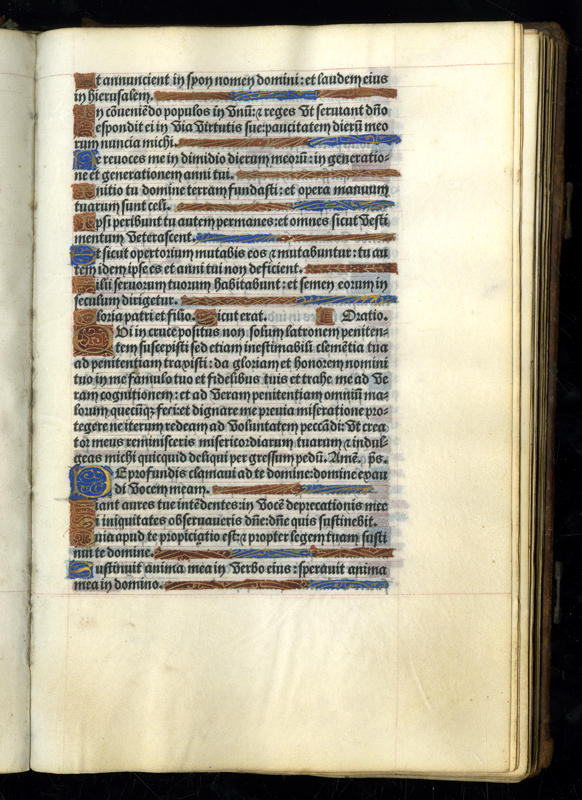 Et annuncient in syon nomen domini: et laudem eius
in hierusalem.
In cōueniēdo populos in vnū: ⁊ reges vt seruiant dño
Respondit ei in via virtutis sue: paucitatem dierū meo
rum nuncia michi.
Ne reuoces me in dimidio dierum meorū: in generatio-
ne et generationem anni tui.
Initio tu domine terram fundasti: et opera manuum
tuarum sunt celi.
Ipsi peribunt tu autem permanes: et omnes sicut vesti
mentum veterascent.
Et sicut opertorium mutabis eos ⁊ mutabuntur: tu au
tem idem ipse es et anni tui non deficient.
Filii seruorum tuorum habitabunt: et semen eorum in
seculum dirigetur.
Gloria patri et filio. Sicut erat. Oratio.
Qui in cruce positus non solum latronem peniten-
tem suscepisti sed etiam inestimabili clemētia tua
ad penitentiam traxisti: da gloriam et honorem nomini
tuo in me famulo tuo et fidelibus tuis et trahe me ad ve
ram cognitionem: et ad veram penitentiam omniū ma-
lorum quecūqꝫ feci: et dignare me preuia miseratione pro-
tegere ne iterum redeam ad voluntatem peccādi: vt crea
tor meus reminisceris misericordiarum tuarum ⁊ indul-
geas michi quicquid deliqui per gressum pedū. Amē. p̄s.
De profundis clamaui ad te domine: domine exau
di vocem meam.
Fiant aures tue intēdentes: in vocē deprecationis mee
Si iniquitates obseruaueris dñe: dñe quis sustinebit.
Quia apud te propiciatio est: ⁊ propter legem tuam susti
nui te domine.
Sustinuit anima mea in verbo eius: sperauit anima
mea in domino.